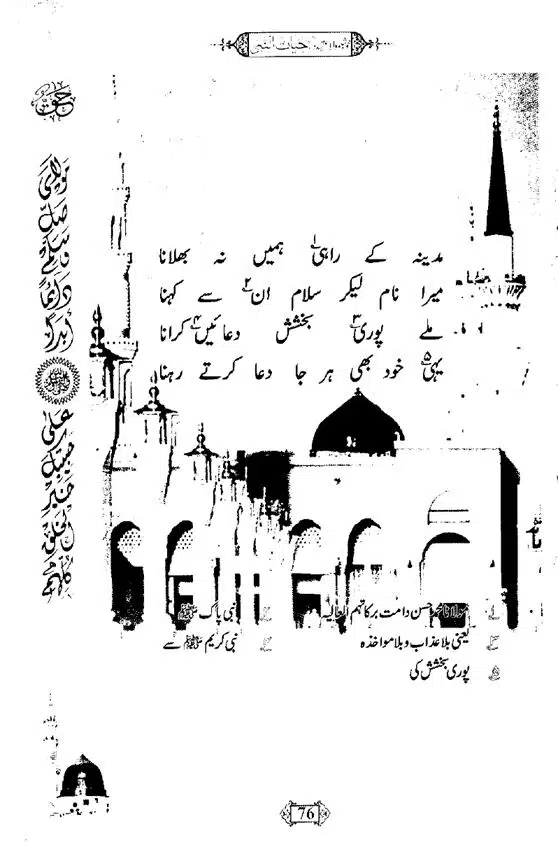 حیات النبی
حق
مولای صل وسلم دائما ابدا
علی حبیبک خیر الخلق کلهم
مدینہ کے راہی۱ ہمیں نہ بھلانا
میرا نام لیکر سلام ان۲ سے کہنا
ملے پوری۳ بخشش دعائیں۴ کرانا
یہی۵ خود بھی ہر جا دعا کرتے رہنا
۱ مولانا محمد حسن دامت برکاتہم العالیہ ۲ نبی پاک ﷺ
۳ یعنی بلا عذاب و بلا مواخذہ ۴ نبی کریم ﷺ سے
۵ پوری بخشش کی
76